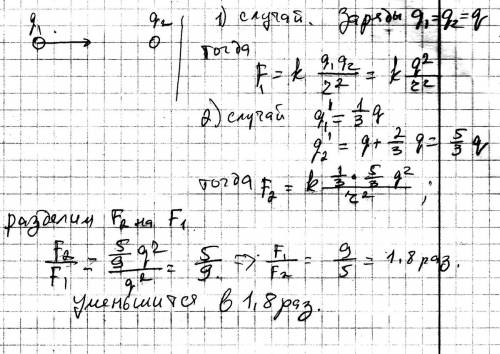 q₁ q₂ 1) случай. Заряды q₁=q₂=q
тогда
F₁ = k q₁q₂/r² = k q²/r²
2) случай q₁' = 1/3 q
q₂' = q + 2/3 q = 5/3 q
тогда F₂ = k 1/3 · 5/3 q² / r² ;
разделим F₂ на F₁
F₂/F₁ = 5/9 q² / q² = 5/9. => F₁/F₂ = 9/5 = 1,8 раз.
уменьшится в 1,8 раз.